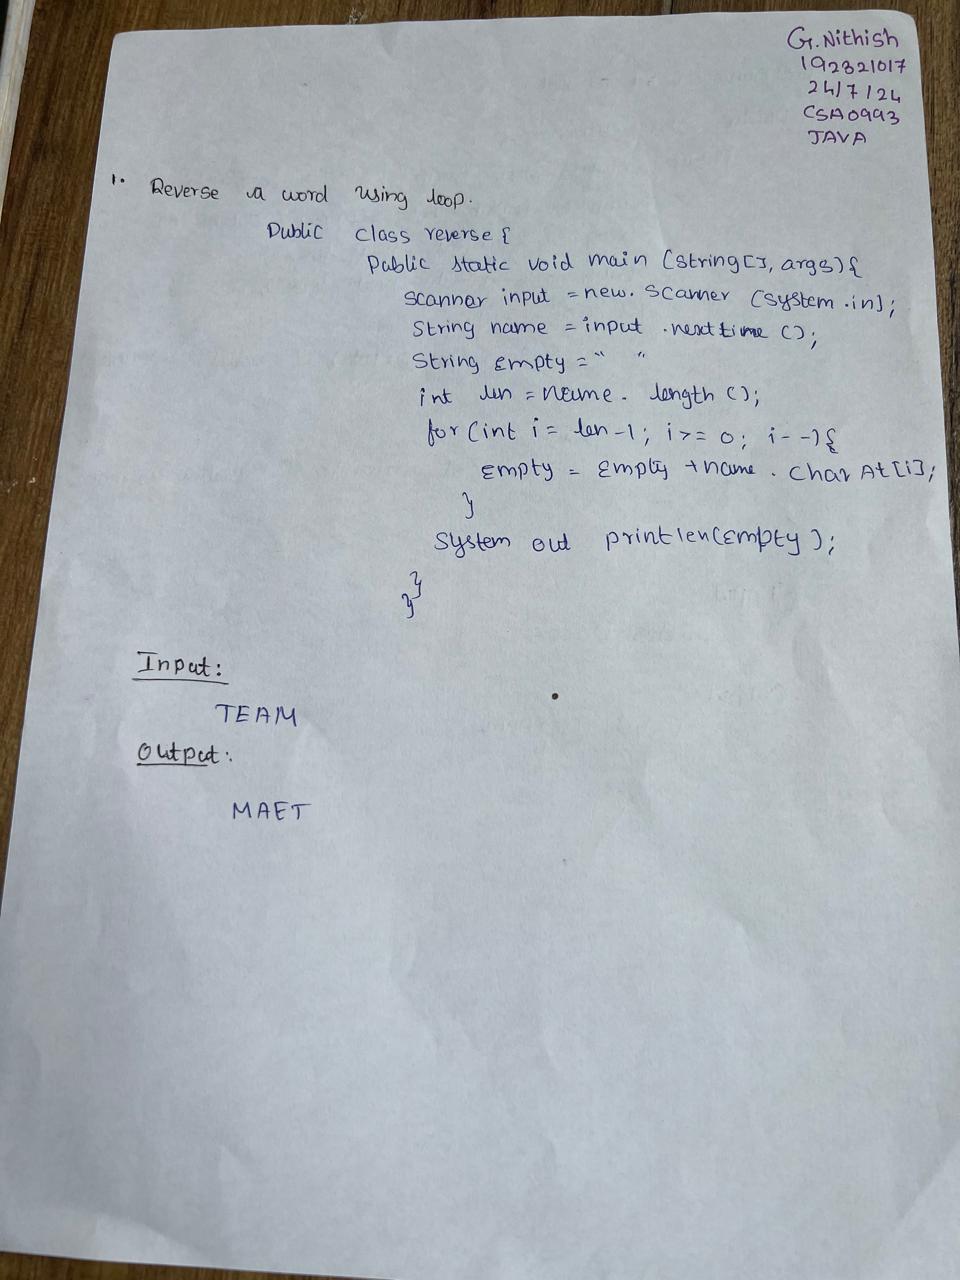 G.Nithish
192321017
24/7/24
CSA0993
JAVA
1. Reverse a word using loop.
Public class reverse {
Public static void main (string[], args) {
scanner input = new. Scanner (system.in];
String name = input .nexttime ();
String empty = " "
int len = name. length ();
for (int i = len-1; i >= 0; i--) {
empty = empty + name . char At [i];
}
System out printlen(empty);
}
}
Input:
TEAM
Output:
MAET